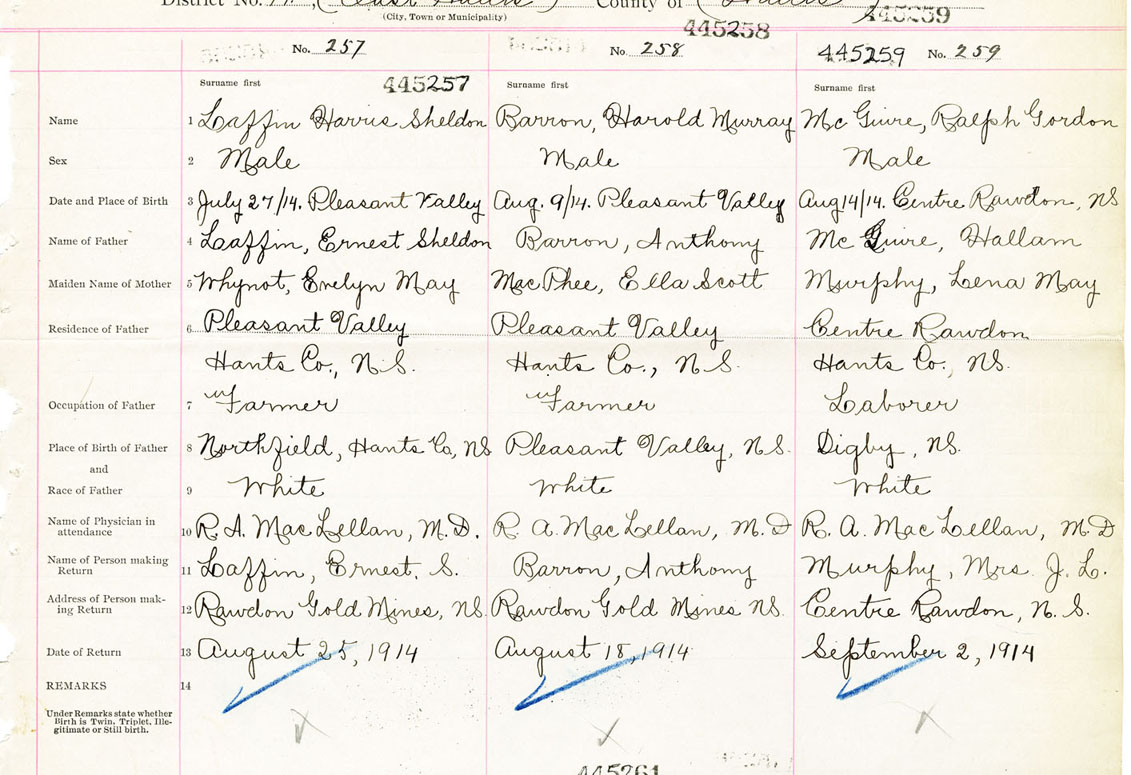 District No. County of
(City, Town or Municipality)
445259
445258
No. 257 No. 258 445259 No. 259
Surname first 445257 Surname first Surname first
Name 1 Laffin Harris Sheldon Barron, Harold Murray Mc Guire, Ralph Gordon
Sex 2 Male Male Male
Date and Place of Birth 3 July 27/14. Pleasant Valley Aug. 9/14. Pleasant Valley Aug 14/14. Centre Rawdon, NS
Name of Father 4 Laffin, Ernest Sheldon Barron, Anthony Mc Guire, Hallam
Maiden Name of Mother 5 Whynot, Evelyn May MacPhee, Ella Scott Murphy, Lena May
Residence of Father 6 Pleasant Valley Pleasant Valley Centre Rawdon
Hants Co., N.S. Hants Co., N.S. Hants Co., NS.
Occupation of Father 7 Farmer Farmer Laborer
Place of Birth of Father 8 Northfield, Hants Co, NS Pleasant Valley, N.S. Digby, NS.
and
Race of Father 9 White White White
Name of Physician in
attendance 10 R. A. MacLellan, M.D. R. A. MacLellan, M.D R. A. MacLellan, M.D
Name of Person making
Return 11 Laffin, Ernest. S. Barron, Anthony Murphy, Mrs. J. L.
Address of Person mak-
ing Return 12 Rawdon Gold Mines, NS. Rawdon Gold Mines NS. Centre Rawdon, N.S.
Date of Return 13 August 25, 1914 August 18, 1914 September 2, 1914
REMARKS 14
Under Remarks state whether
Birth is Twin, Triplet, Ille-
gitimate or Still birth.
445261